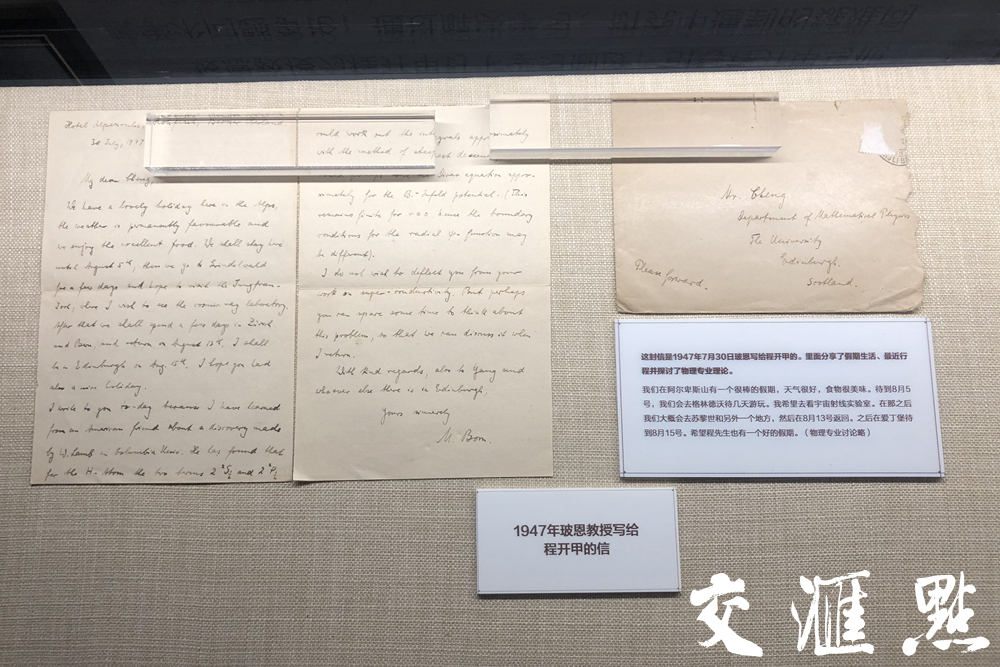 30 July, 1947
My dear Cheng,
We have a lovely holiday here in the Alps,
the weather is permanently favourable and
we enjoy the excellent food. We shall stay here
until August 5th, then we go to Grindelwald
for a few days and hope to visit the Jungfrau-
Joch, where I wish to see the cosmic ray laboratory.
After that we shall spend a few days in Zürich
and Bern, and return on August 13th. I shall
be in Edinburgh on Aug. 15th. I hope you had
also a nice holiday.
I write to you to-day because I have learned
from an American friend about a discovery made
by W. Lamb in Columbia Univ. He has found that
for the H-Atom the two terms
could work out the integrals approximately
with the method of steepest descent
equation appro-
ximately for the B.-Infeld potential. (This
remains finite for r=0 hence the boundary
conditions for the radial ψ-function may
be different).
I do not wish to deflect you from your
work on super-conductivity. But perhaps
you can spare some time to think about
this problem, so that we can discuss it when
I return.
With kind regards, also to Yang and
whoever else there is in Edinburgh,
Yours sincerely
M. Born.
Mr. Cheng
Department of Mathematical Physics
The University
Edinburgh.
Scotland.
Please
forward.
这封信是1947年7月30日玻恩写给程开甲的。里面分享了假期生活、最近行
程并探讨了物理专业理论。
我们在阿尔卑斯山有一个很棒的假期，天气很好，食物很美味。待到8月5
号，我们会去格林德沃待几天游玩。我希望去看宇宙射线实验室。在那之后
我们大概会去苏黎世和另外一个地方，然后在8月13号返回。之后在爱丁堡待
到8月15号。希望程先生也有一个好的假期。（物理专业讨论略）
1947年玻恩教授写给
程开甲的信
交滙點